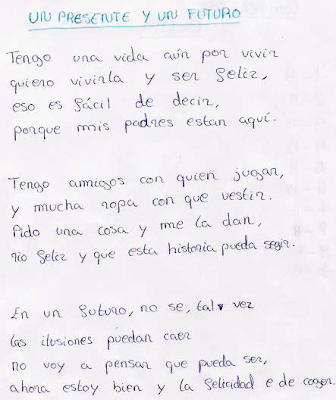 UN PRESENTE Y UN FUTURO
Tengo una vida aún por vivir
quiero vivirla y ser feliz,
eso es fácil de decir,
porque mis padres estan aquí.
Tengo amigos con quien jugar,
y mucha ropa con que vestir.
Pido una cosa y me la dan,
rio feliz y que esta historia pueda segir.
En un futuro, no se, tal vez
las ilusiones puedan caer
no voy a pensar que pueda ser,
ahora estoy bien y la felicidad e de coger.